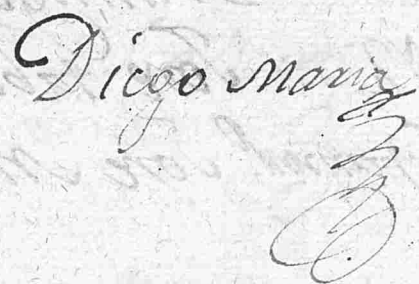 Diego Maria